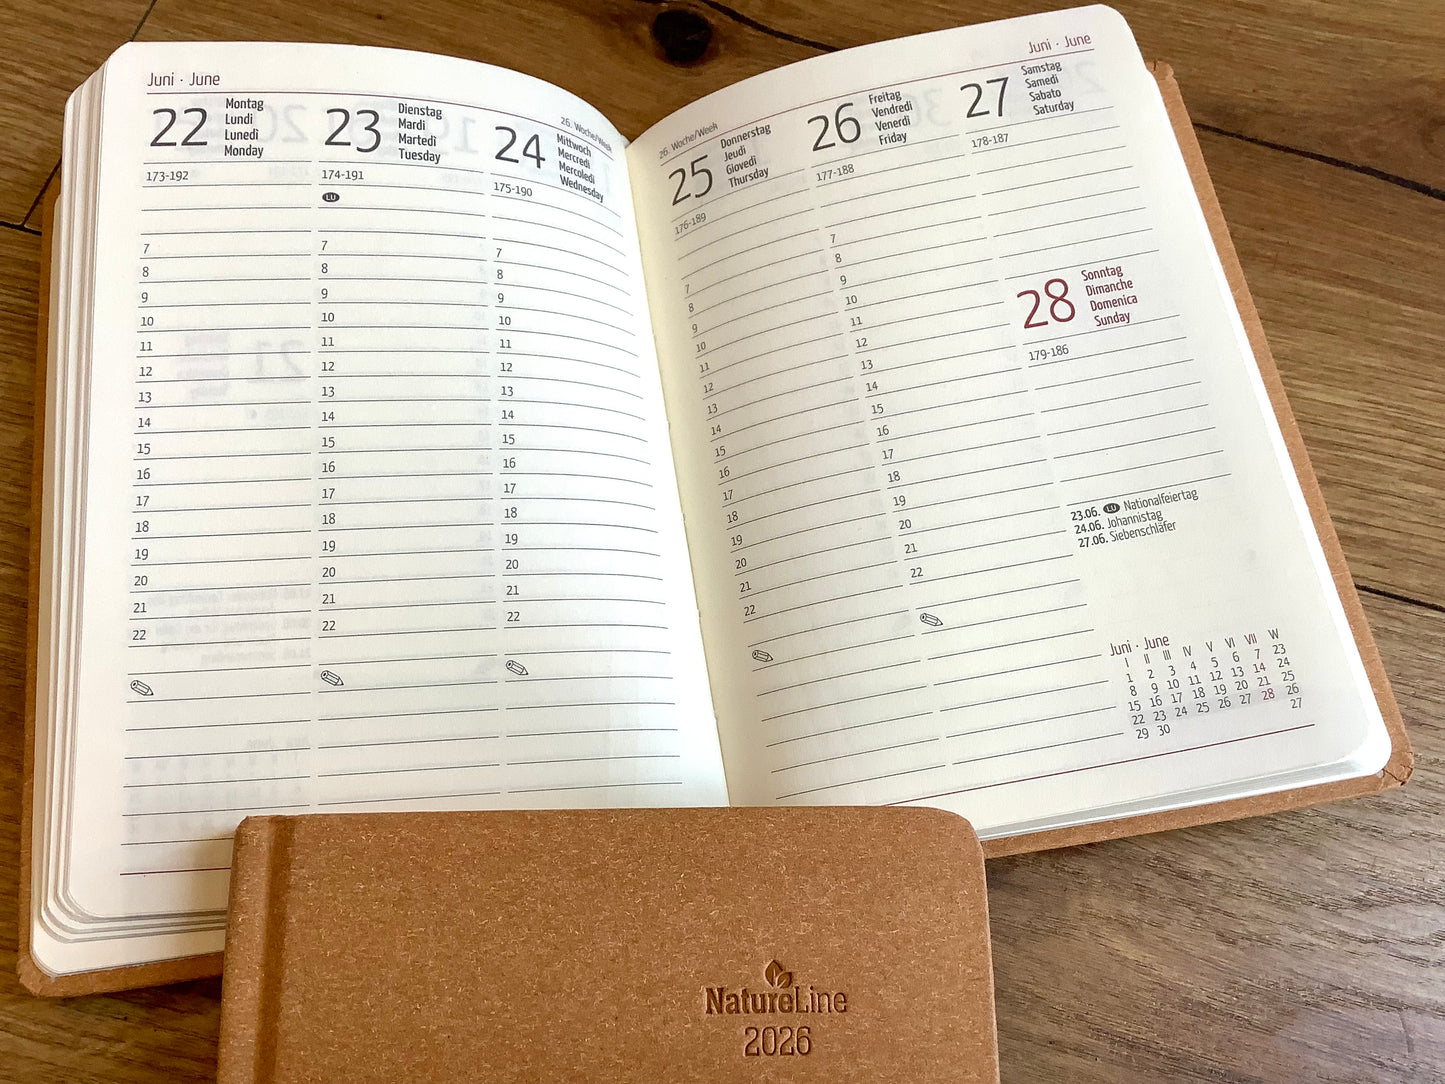 Juni · June
22
Montag
Lundi
Lunedì
Monday
173-192
7
8
9
10
11
12
13
14
15
16
17
18
19
20
21
22
23
Dienstag
Mardi
Martedì
Tuesday
174-191
LU
7
8
9
10
11
12
13
14
15
16
17
18
19
20
21
22
26. Woche/Week
24
Mittwoch
Mercredi
Mercoledì
Wednesday
175-190
7
8
9
10
11
12
13
14
15
16
17
18
19
20
21
22
Juni · June
26. Woche/Week
25
Donnerstag
Jeudi
Giovedì
Thursday
176-189
7
8
9
10
11
12
13
14
15
16
17
18
19
20
21
22
26
Freitag
Vendredi
Venerdì
Friday
177-188
7
8
9
10
11
12
13
14
15
16
17
18
19
20
21
22
27
Samstag
Samedi
Sabato
Saturday
178-187
28
Sonntag
Dimanche
Domenica
Sunday
179-186
23.06. LU Nationalfeiertag
24.06. Johannistag
27.06. Siebenschläfer
Juni · June
I II III IV V VI VII W
1 2 3 4 5 6 7 23
8 9 10 11 12 13 14 24
15 16 17 18 19 20 21 25
22 23 24 25 26 27 28 26
29 30 27
NatureLine
2026